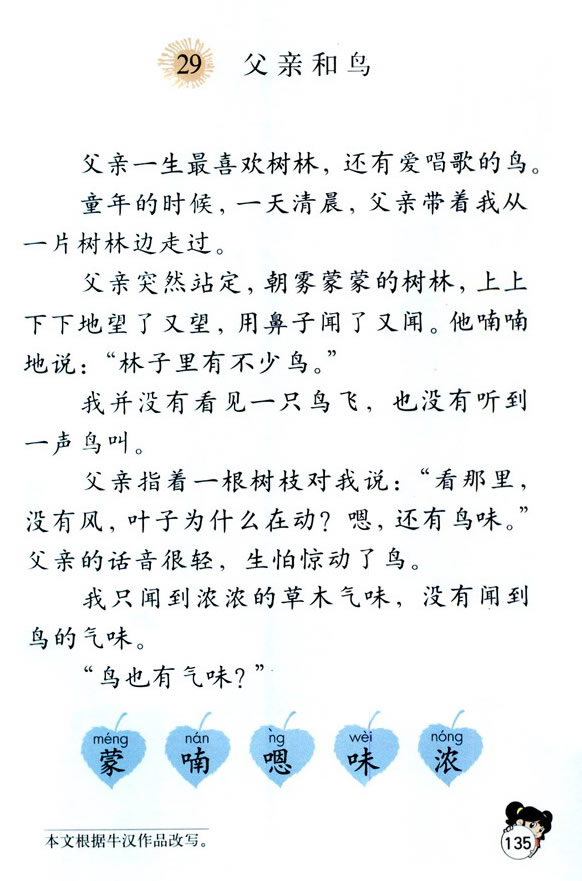 29 父亲和鸟
父亲一生最喜欢树林，还有爱唱歌的鸟。
童年的时候，一天清晨，父亲带着我从
一片树林边走过。
父亲突然站定，朝雾蒙蒙的树林，上上
下下地望了又望，用鼻子闻了又闻。他喃喃
地说：“林子里有不少鸟。”
我并没有看见一只鸟飞，也没有听到
一声鸟叫。
父亲指着一根树枝对我说：“看那里，
没有风，叶子为什么在动？嗯，还有鸟味。”
父亲的话音很轻，生怕惊动了鸟。
我只闻到浓浓的草木气味，没有闻到
鸟的气味。
“鸟也有气味？”
méng nán ǹg wèi nóng
蒙 喃 嗯 味 浓
本文根据牛汉作品改写。
135